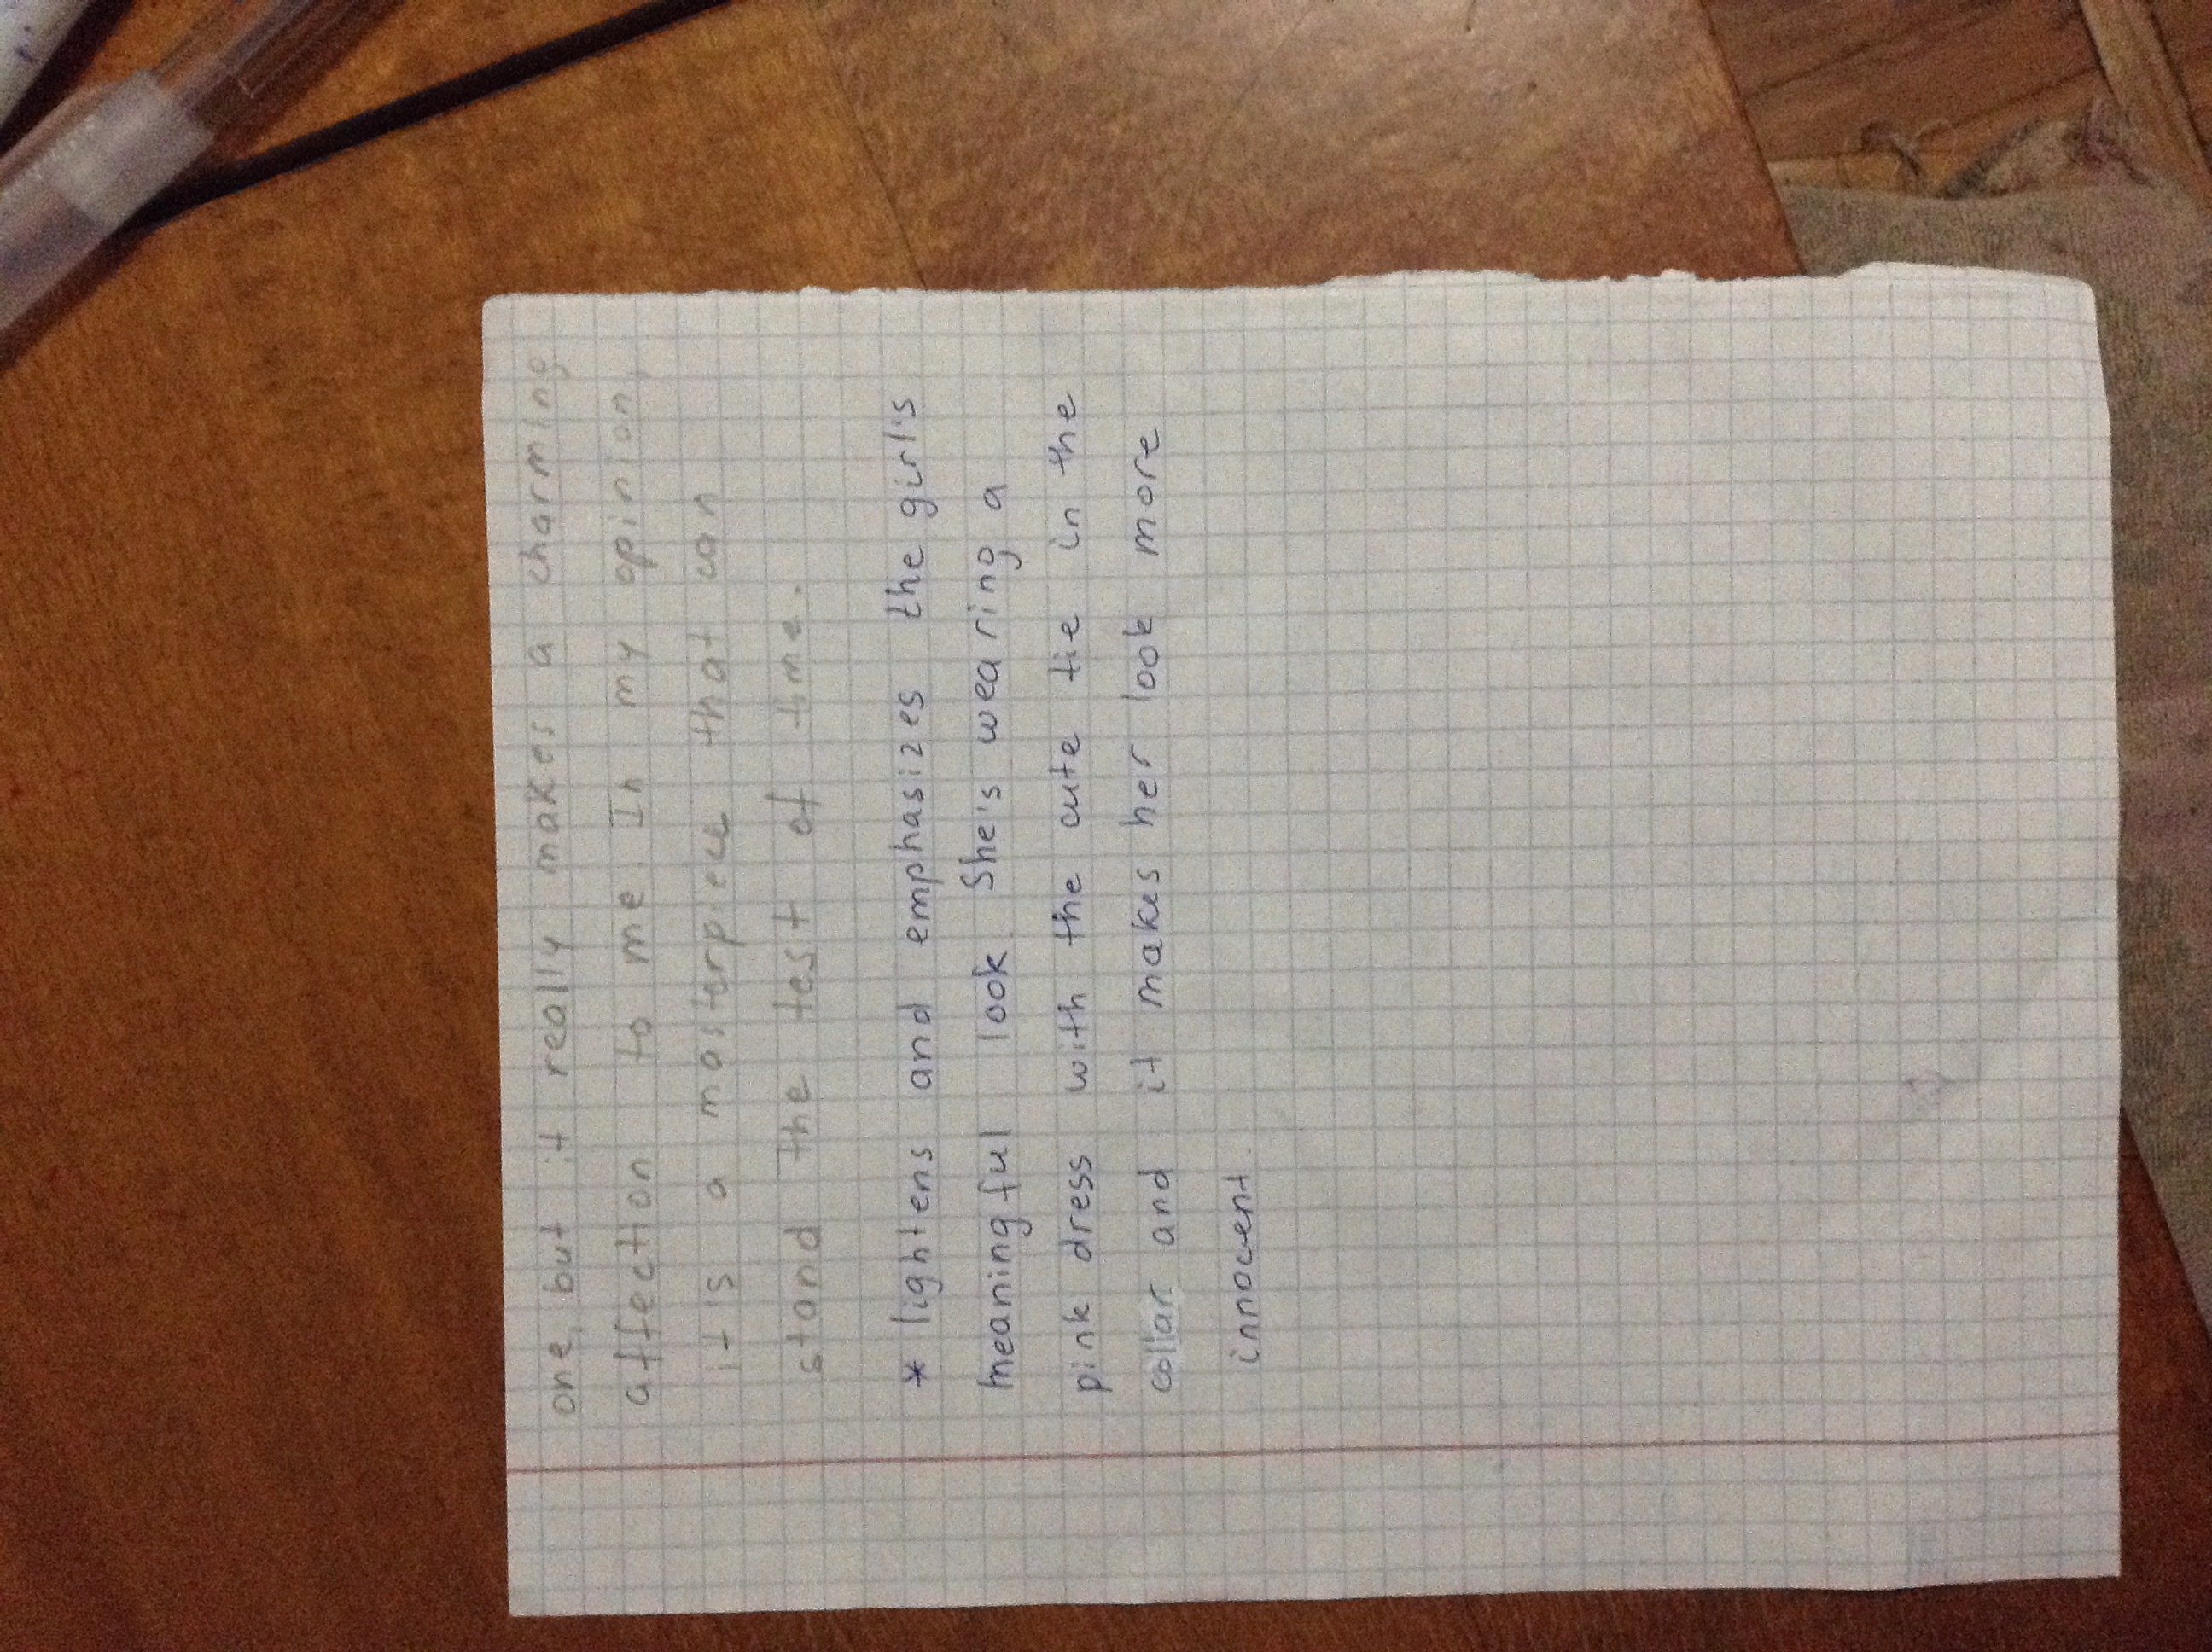 one, but it really makes a charming
affection to me. In my opinion,
it is a masterpiece that can
stand the test of time.
* lightens and emphasizes the girl's
meaningful look. She's wearing a
pink dress with the cute tie in the
collar and it makes her look more
innocent.